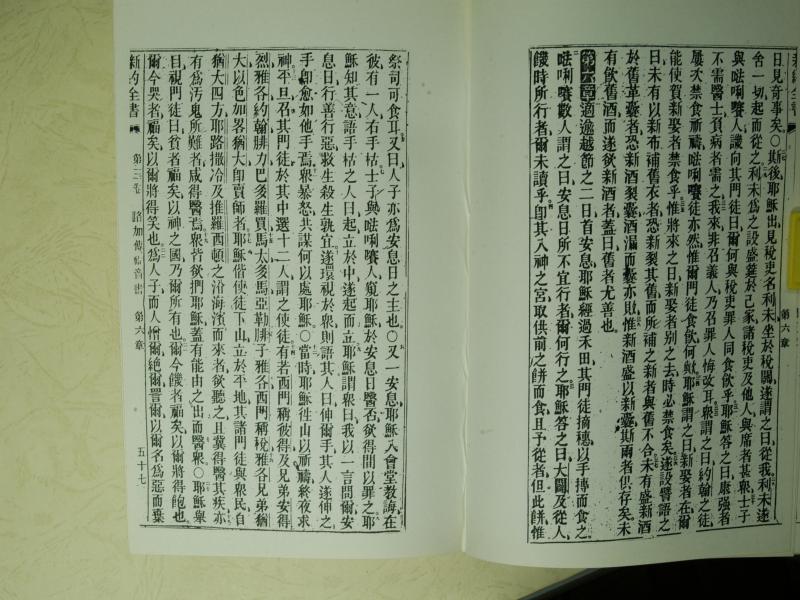 日見奇事矣○斯後耶穌出見稅吏名利未坐於稅關遂謂之曰從我利未遂
舍一切起而從之利未爲之設盛筵於己家諸稅吏及他人與席者甚衆士子
與𠵽唎㘔人議向其門徒曰爾何與稅吏罪人同食飲乎耶穌答之曰康强者
不需醫士負病者需之我來非召義人乃召罪人悔改耳衆謂之曰約翰之徒
屢次禁食祈禱𠵽唎㘔徒亦然惟爾門徒食飲何歟耶穌謂之曰新娶者在爾
能使賀新娶者禁食乎惟將來之日新娶者別之去時必禁食矣遂設譬語之
曰未有以新布補舊衣者恐新裂其舊而所補之新者與舊不合未有盛新酒
於舊革囊者恐新酒裂囊酒漏而囊亦敗惟新酒盛以新囊斯兩者俱存矣未
有飲舊酒而遂欲新酒者蓋曰舊者尤善也
第六章 適逾越節之二日首安息耶穌經過禾田其門徒摘穗以手摶而食之
𠵽唎㘔數人謂之曰安息日所不宜行者爾何行之耶穌答之曰大闢及從人
饑時所行者爾未讀乎卽其入神之宮取供前之餅而食且予從者但此餅惟
第六章
祭司可食耳又曰人子亦爲安息日之主也○又一安息耶穌入會堂教誨在
彼有一人右手枯士子與𠵽唎㘔人窺耶穌於安息日醫否欲得間以罪之耶
穌知其意語手枯之人曰起立於中遂起而立耶穌謂衆曰我以一言問爾安
息日行善行惡救生殺生孰宜遂環視於衆則語其人曰伸爾手其人遂伸之
手卽愈如他手焉衆暴怒共謀何以處耶穌○當時耶穌往山以祈禱終夜求
神平旦召其門徒於其中選十二人謂之使徒有若西門稱彼得及兄弟安得
烈雅各約翰腓力巴多羅買馬太多馬亞勒腓子雅各西門稱稅雅各兄弟猶
大以色加畧猶大卽賣師者耶穌偕使徒下山立於平地其諸門徒與衆民自
猶大四方耶路撒冷及推羅西頓之沿海濱而來者欲聽之且冀得醫其疾亦
有爲汚鬼所難者咸得醫焉衆皆欲捫耶穌蓋有能由之出而醫衆○耶穌舉
目視門徒曰貧者福矣以神之國乃爾所有也爾今饑者福矣以爾將得飽也
爾今哭者福矣以爾將得笑也爲人子而人憎爾絕爾詈爾以爾名爲惡而棄
新約全書 第三卷 路加傳福音書 第六章 五十七